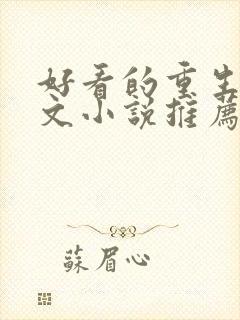 好看的重生
文小說推薦
蘇眉心